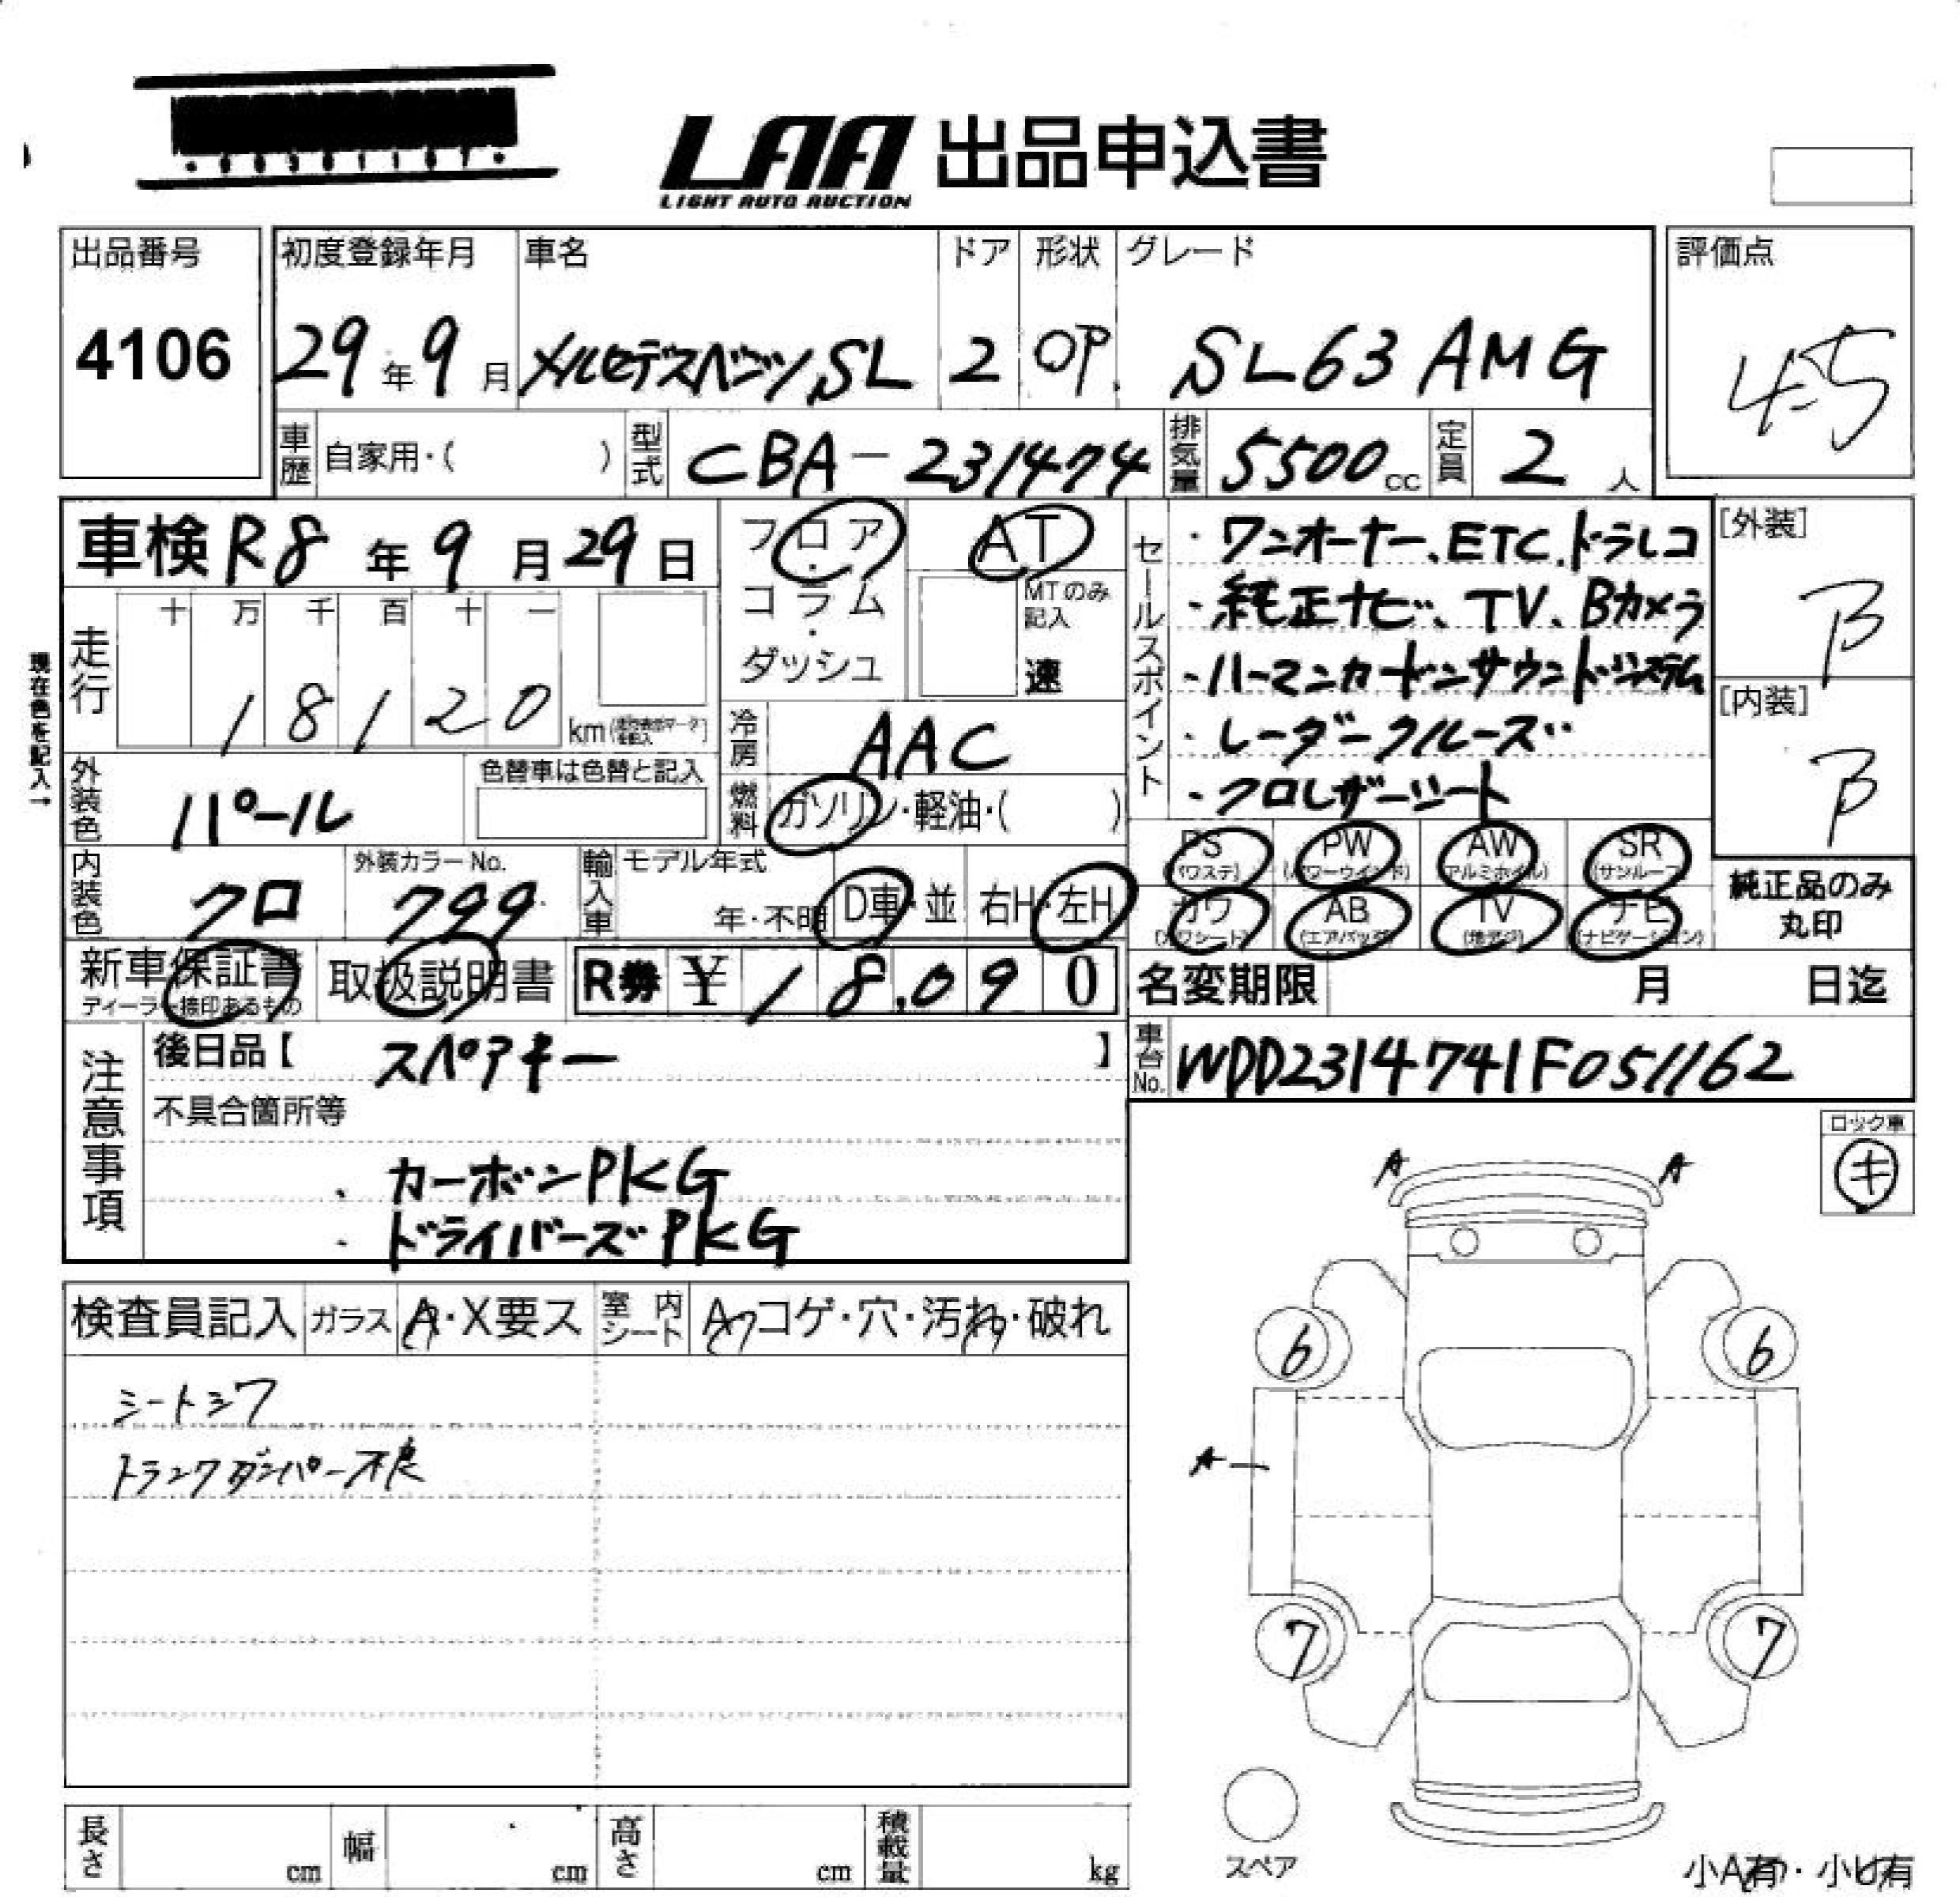 LAA 出品申込書
LIGHT AUTO AUCTION
出品番号
4106
初度登録年月
29年9月
車名
メルセデスベンツSL
ドア
2
形状
OP
グレード
SL63 AMG
評価点
4.5
車歴 自家用・( )
型式 CBA-231474
排気量 5500cc
定員 2人
車検 R8年9月29日
フロア・コラム・ダッシュ
AT
MTのみ記入
速
セールスポイント
・ワンオーナー、ETC、ドラレコ
・純正ナビ、TV、Bカメラ
・ハーマンカードンサウンドシステム
・レーダークルーズ
・クロレザーシート
[外装]
B
[内装]
B
現在色を記入→
走行 十 万 千 百 十 一
18120 km
冷房 AAC
外装色 パール
色替車は色替と記入
燃料 ガソリン・軽油・( )
PS (パワステ) PW (パワーウインド) AW (アルミホイル) SR (サンルーフ)
カワ (カワシート) AB (エアバッグ) TV (地デジ) ナビ (ナビゲーション)
純正品のみ
丸印
内装色 クロ
外装カラーNo.
799
輸入車 モデル年式
年・不明
D車・並
右H・左H
新車保証書
ディーラー捺印あるもの
取扱説明書
R券 ¥18,090
名変期限 月 日迄
車台No. WDD2314741F051162
注意事項
後日品【 スペアキー 】
不具合箇所等
・カーボンPKG
・ドライバーズPKG
ロック車
キ
検査員記入 ガラス A・X要ス 室内シート コゲ・穴・汚れ・破れ
シートシワ
トランクダンパー不良
A A
6 6
A
7 7
スペア
長さ cm 幅 cm 高さ cm 積載量 kg
小A有・小U有